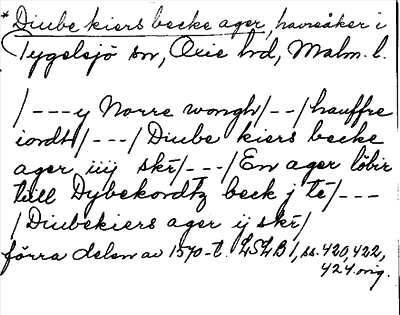 * Diube kiers becke ager, havreåker i
Tygelsjö sn, Oxie hd, Malm. l.
/---y Norre wongh/--/hauffre
iordt/---/Diube kiers becke
ager iiij skr/---/En ager löbir
till Dybekordtz beck j te/---
/Diubekiers ager ij skr/
förra delen av 1570-t. LSLB 1, ss. 420, 422,
424. orig.